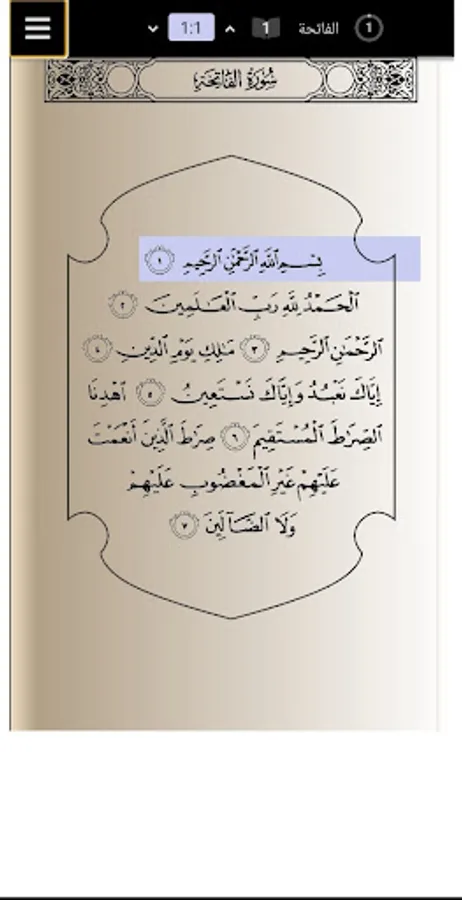 1 الفاتحة 1 1:1
سُورَةُ الفَاتِحَةِ
بِسْمِ ٱللَّهِ ٱلرَّحْمَٰنِ ٱلرَّحِيمِ ١
ٱلْحَمْدُ لِلَّهِ رَبِّ ٱلْعَٰلَمِينَ ٢
ٱلرَّحْمَٰنِ ٱلرَّحِيمِ ٣ مَٰلِكِ يَوْمِ ٱلدِّينِ ٤
إِيَّاكَ نَعْبُدُ وَإِيَّاكَ نَسْتَعِينُ ٥ ٱهْدِنَا
ٱلصِّرَٰطَ ٱلْمُسْتَقِيمَ ٦ صِرَٰطَ ٱلَّذِينَ أَنْعَمْتَ
عَلَيْهِمْ غَيْرِ ٱلْمَغْضُوبِ عَلَيْهِمْ
وَلَا ٱلضَّآلِّينَ ٧